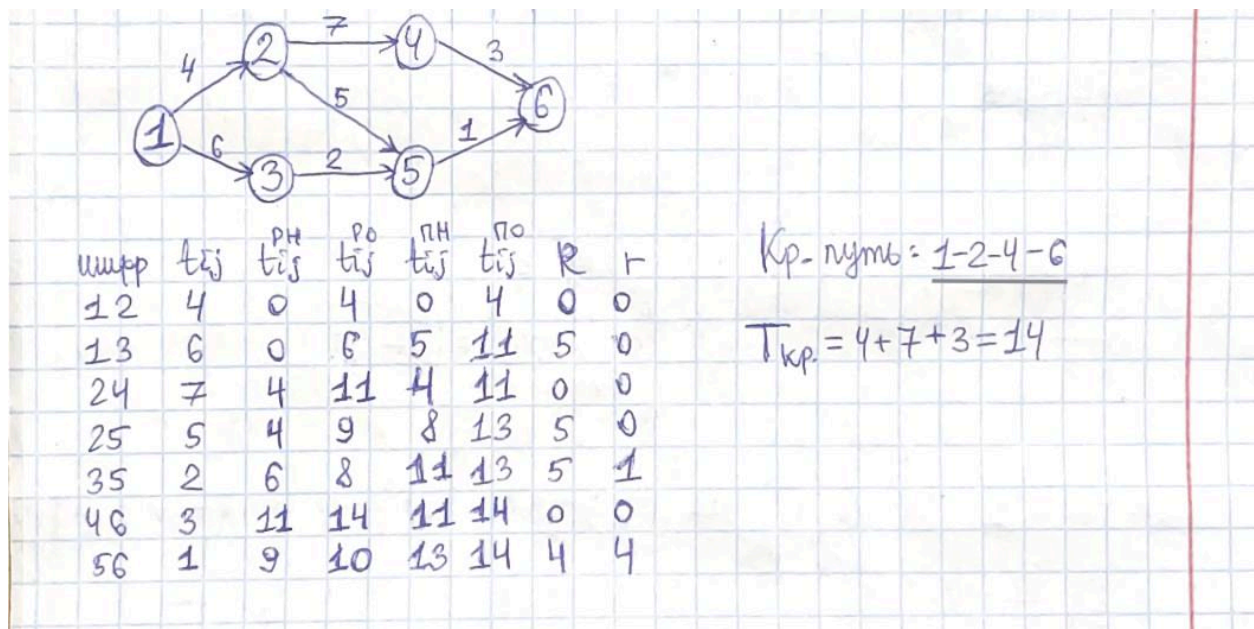 7
2
4
4
3
5
6
1
1
6
2
3
5
шифр tij tij^РН tij^РО tij^ПН tij^ПО R r
12 4 0 4 0 4 0 0
13 6 0 6 5 11 5 0
24 7 4 11 4 11 0 0
25 5 4 9 8 13 5 0
35 2 6 8 11 13 5 1
46 3 11 14 11 14 0 0
56 1 9 10 13 14 4 4
Кр. путь: 1-2-4-6
Tкр. = 4+7+3=14